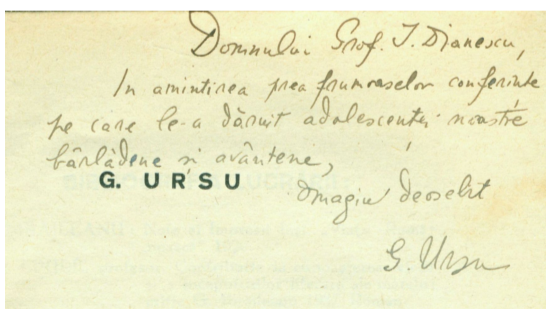 Domnului Prof. I. Dianescu,
In amintirea prea frumoaselor conferințe
pe care le-a dăruit adolescenței noastre
bârlădene și avântene,
G. URSU
omagiu deosebit
G. Ursu